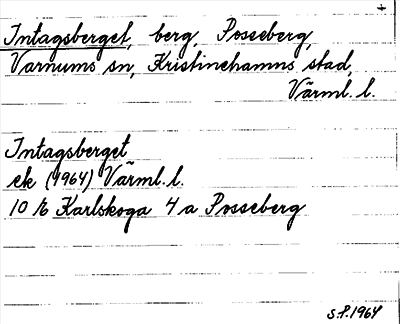 Intagsberget, berg, Posseberg,
Varnums sn, Kristinehamns stad,
Värml. l.
Intagsberget
ek (1964) Värml. l.
10 E Karlskoga 4 a Posseberg
S.P. 1964